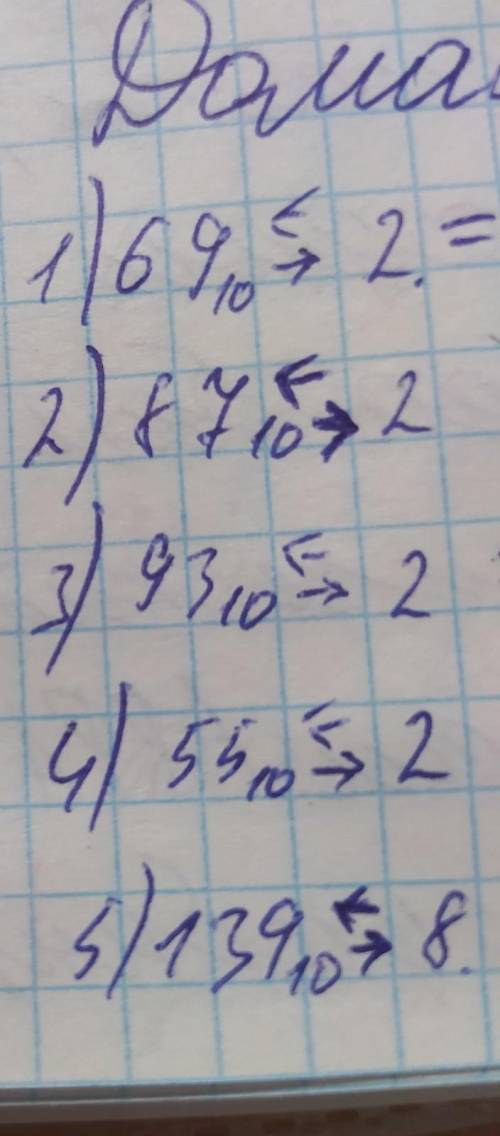 1) 69₁₀ ⇄ 2. =
2) 87₁₀ ⇄ 2
3) 93₁₀ ⇄ 2
4) 55₁₀ ⇄ 2
5) 139₁₀ ⇄ 8.